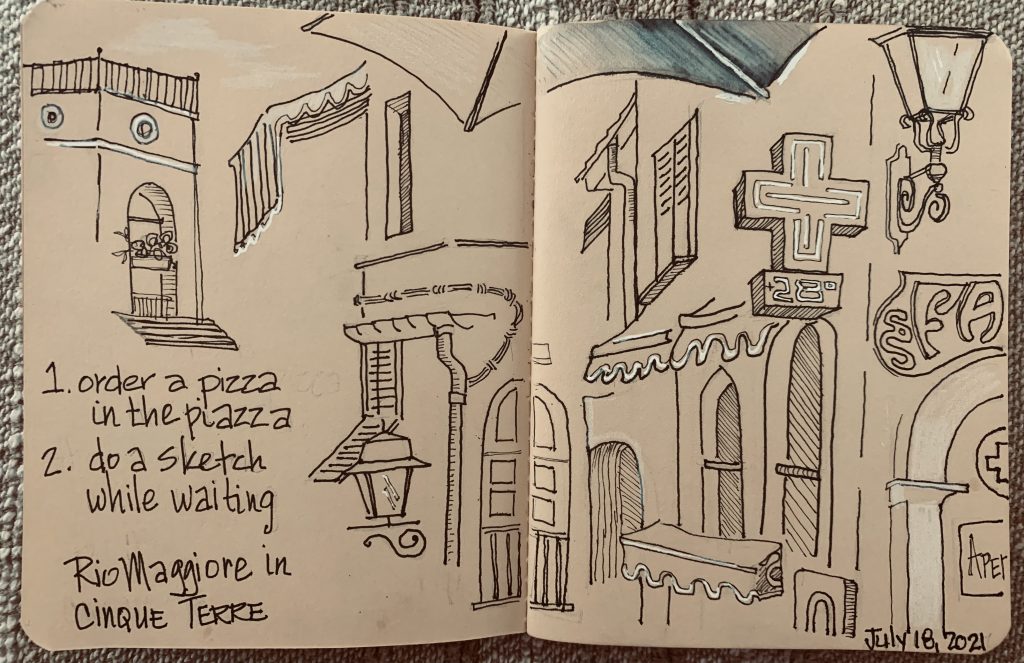 1. order a pizza
in the piazza
2. do a sketch
while waiting
Rio Maggiore in
Cinque Terre
+28°
FA
APER
July 18, 2021